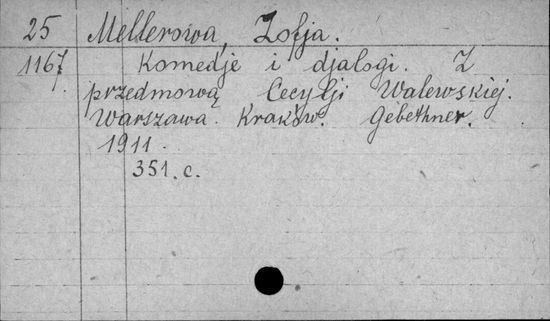 25 Mellerowa, Zofja.
1167 Komedje i djalogi. Z
przedmową Cecylji Walewskiej.
Warszawa. Kraków. Gebethner.
1911.
351. c.